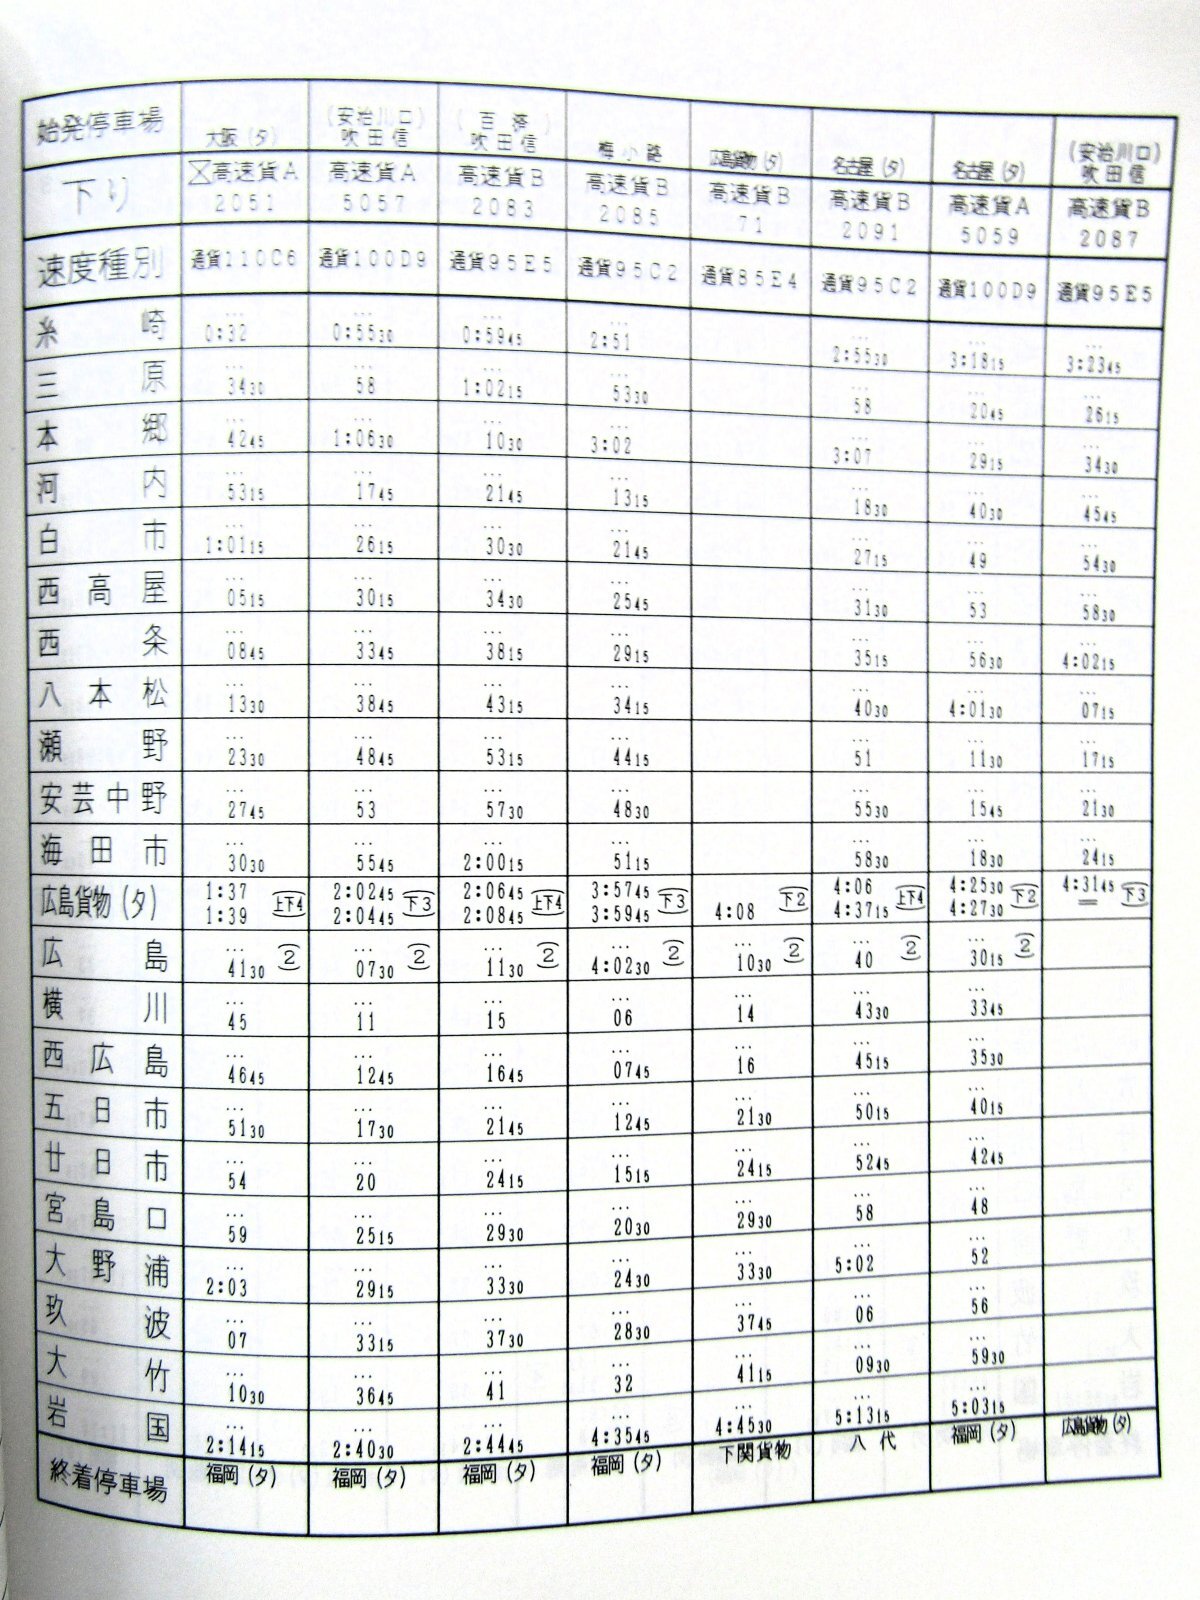 始発停車場 大阪(タ) (安治川口) 吹田信 (百済) 吹田信 梅小路 広島貨物(タ) 名古屋(タ) 名古屋(タ) (安治川口) 吹田信
下り 高速貨A 2051 高速貨A 5057 高速貨B 2083 高速貨B 2085 高速貨B 71 高速貨B 2091 高速貨A 5059 高速貨B 2087
速度種別 通貨110C6 通貨100D9 通貨95E5 通貨95C2 通貨85E4 通貨95C2 通貨100D9 通貨95E5
糸崎 … 0:32 … 0:5530 … 0:5945 … 2:51 … 2:5530 … 3:1815 … 3:2345
三原 … 3430 … 58 … 1:0215 … 5330 … 58 … 2045 … 2615
本郷 … 4245 … 1:0630 … 1030 … 3:02 … 3:07 … 2915 … 3430
河内 … 5315 … 1745 … 2145 … 1315 … 1830 … 4030 … 4545
白市 … 1:0115 … 2615 … 3030 … 2145 … 2715 … 49 … 5430
西高屋 … 0515 … 3015 … 3430 … 2545 … 3130 … 53 … 5830
西条 … 0845 … 3345 … 3815 … 2915 … 3515 … 5630 … 4:0215
八本松 … 1330 … 3845 … 4315 … 3415 … 4030 … 4:0130 … 0715
瀬野 … 2330 … 4845 … 5315 … 4415 … 51 … 1130 … 1715
安芸中野 … 2745 … 53 … 5730 … 4830 … 5530 … 1545 … 2130
海田市 … 3030 … 5545 … 2:0015 … 5115 … 5830 … 1830 … 2415
広島貨物(タ) 1:37 1:39 上下4 2:0245 2:0445 下3 2:0645 2:0845 上下4 3:5745 3:5945 下3 4:08 下2 4:06 4:3715 上下4 4:2530 4:2730 下2 4:3145 = 下3
広島 … 4130 (2) … 0730 (2) … 1130 (2) … 4:0230 (2) … 1030 (2) … 40 (2) … 3015 (2)
横川 … 45 … 11 … 15 … 06 … 14 … 4330 … 3345
西広島 … 4645 … 1245 … 1645 … 0745 … 16 … 4515 … 3530
五日市 … 5130 … 1730 … 2145 … 1245 … 2130 … 5015 … 4015
廿日市 … 54 … 20 … 2415 … 1515 … 2415 … 5245 … 4245
宮島口 … 59 … 2515 … 2930 … 2030 … 2930 … 58 … 48
大野浦 … 2:03 … 2915 … 3330 … 2430 … 3330 … 5:02 … 52
玖波 … 07 … 3315 … 3730 … 2830 … 3745 … 06 … 56
大竹 … 1030 … 3645 … 41 … 32 … 4115 … 0930 … 5930
岩国 … 2:1415 … 2:4030 … 2:4445 … 4:3545 … 4:4530 … 5:1315 … 5:0315
終着停車場 福岡(タ) 福岡(タ) 福岡(タ) 福岡(タ) 下関貨物 八代 福岡(タ) 広島貨物(タ)